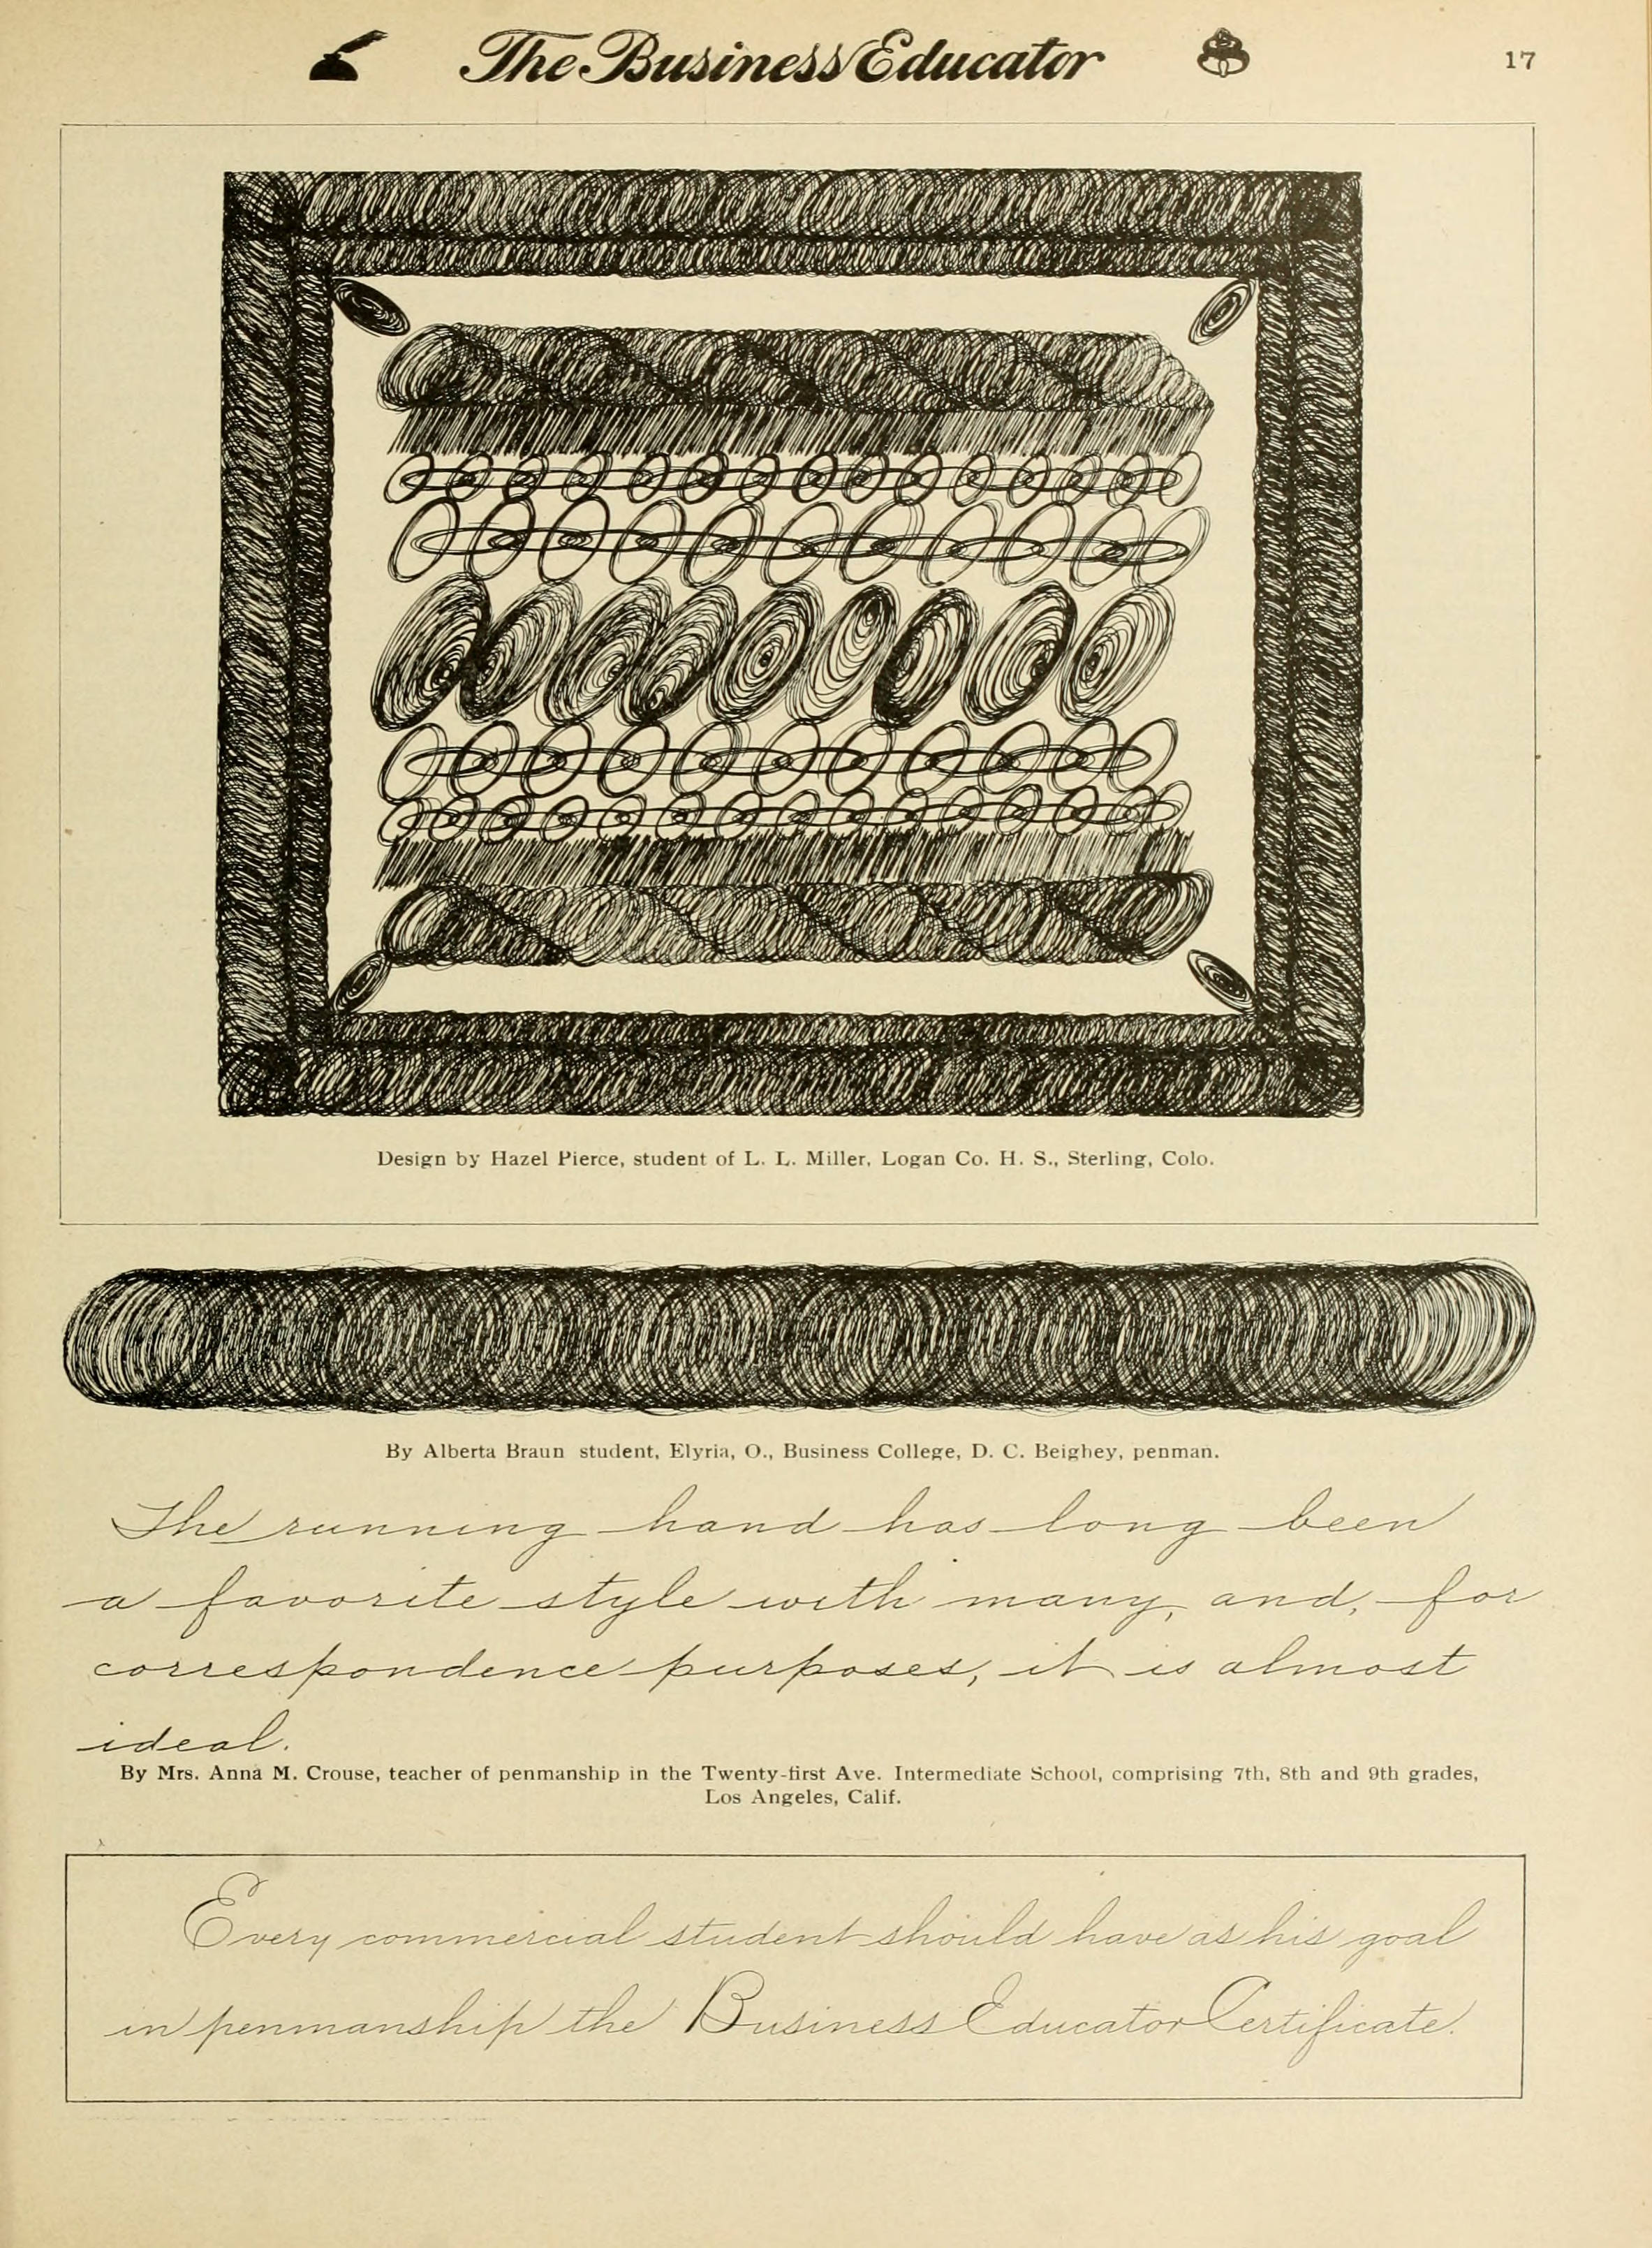 The Business Educator
17
Design by Hazel Pierce, student of L. L. Miller, Logan Co. H. S., Sterling, Colo.
By Alberta Braun student, Elyria, O., Business College, D. C. Beighey, penman.
The running hand has long been
a favorite style with many, and, for
correspondence purposes, it is almost
ideal.
By Mrs. Anna M. Crouse, teacher of penmanship in the Twenty-first Ave. Intermediate School, comprising 7th, 8th and 9th grades,
Los Angeles, Calif.
Every commercial student should have as his goal
in penmanship the Business Educator Certificate.